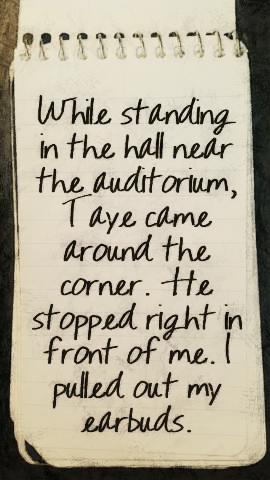 While standing
in the hall near
the auditorium,
Taye came
around the
corner. He
stopped right in
front of me. I
pulled out my
earbuds.